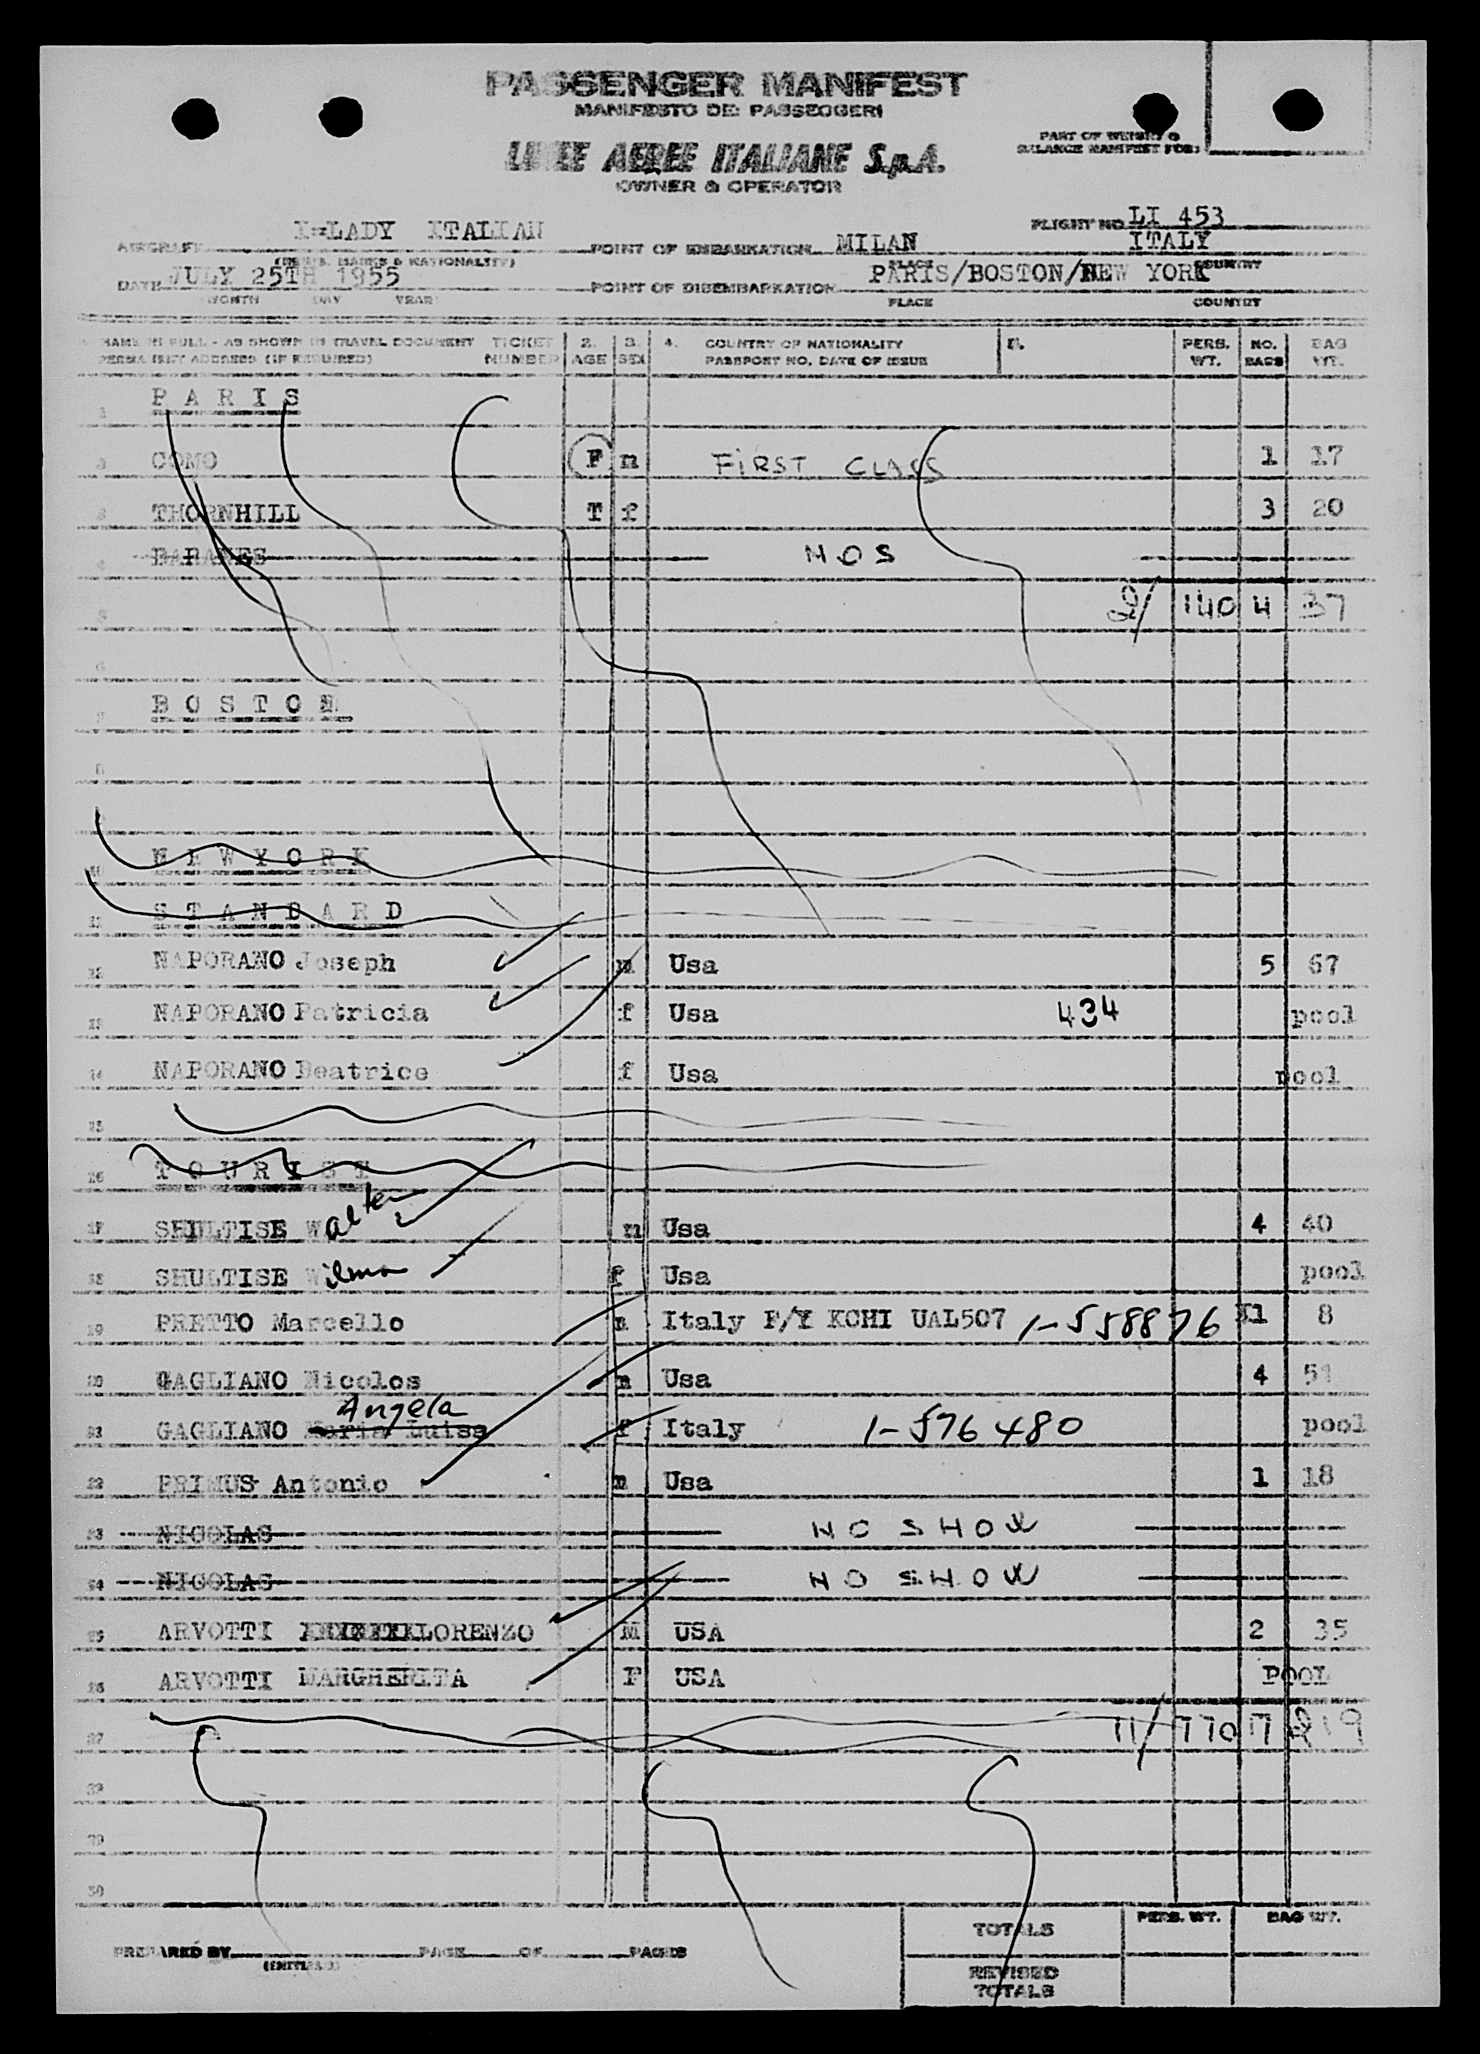 PASSENGER MANIFEST
MANIFESTO DEI PASSEGGERI
PART OF WEIGHT &
BALANCE MANIFEST FOR:
LINEE AEREE ITALIANE S.p.A.
OWNER & OPERATOR
AIRCRAFT I-LADY ITALIAN POINT OF EMBARKATION MILAN ITALY FLIGHT NO. LI 453
(REG. MARKS & NATIONALITY) PLACE COUNTRY
DATE JULY 25TH 1955 POINT OF DISEMBARKATION PARIS/BOSTON/NEW YORK
MONTH DAY YEAR PLACE COUNTRY
NAME IN FULL - AS SHOWN IN TRAVEL DOCUMENT TICKET 2. 3. 4. COUNTRY OF NATIONALITY 5. PERS. NO. BAG
PERMANENT ADDRESS (IF REQUIRED) NUMBER AGE SEX PASSPORT NO. DATE OF ISSUE WT. BAGS WT.
1 PARIS
2 COMO F m FIRST CLASS 1 17
3 THORNHILL T f 3 20
4 NOS
5 2/ 140 4 37
6
7 BOSTON
8
9
10 NEWYORK
11 STANDARD
12 NAPORANO Joseph m Usa 5 67
13 NAPORANO Patricia f Usa 434 pool
14 NAPORANO Beatrice f Usa pool
15
16 TOURIST
17 SHULTISE Walter m Usa 4 40
18 SHULTISE Wilma f Usa pool
19 PRETTO Marcello m Italy F/Y KCHI UAL507 1-558876 1 8
20 GAGLIANO Nicolos m Usa 4 51
21 GAGLIANO Maria Luisa Angela f Italy 1-576480 pool
22 PRIMUS Antonio m Usa 1 18
23 NICOLAS NO SHOW
24 NICOLAS NO SHOW
25 ARVOTTI LORENZO M USA 2 35
26 ARVOTTI MARGHERITA F USA POOL
27 11/ 770 17 219
28
29
30
TOTALS PERS. WT. BAG WT.
PREPARED BY PAGE OF PAGES
(INITIALS)
REVISED
TOTALS